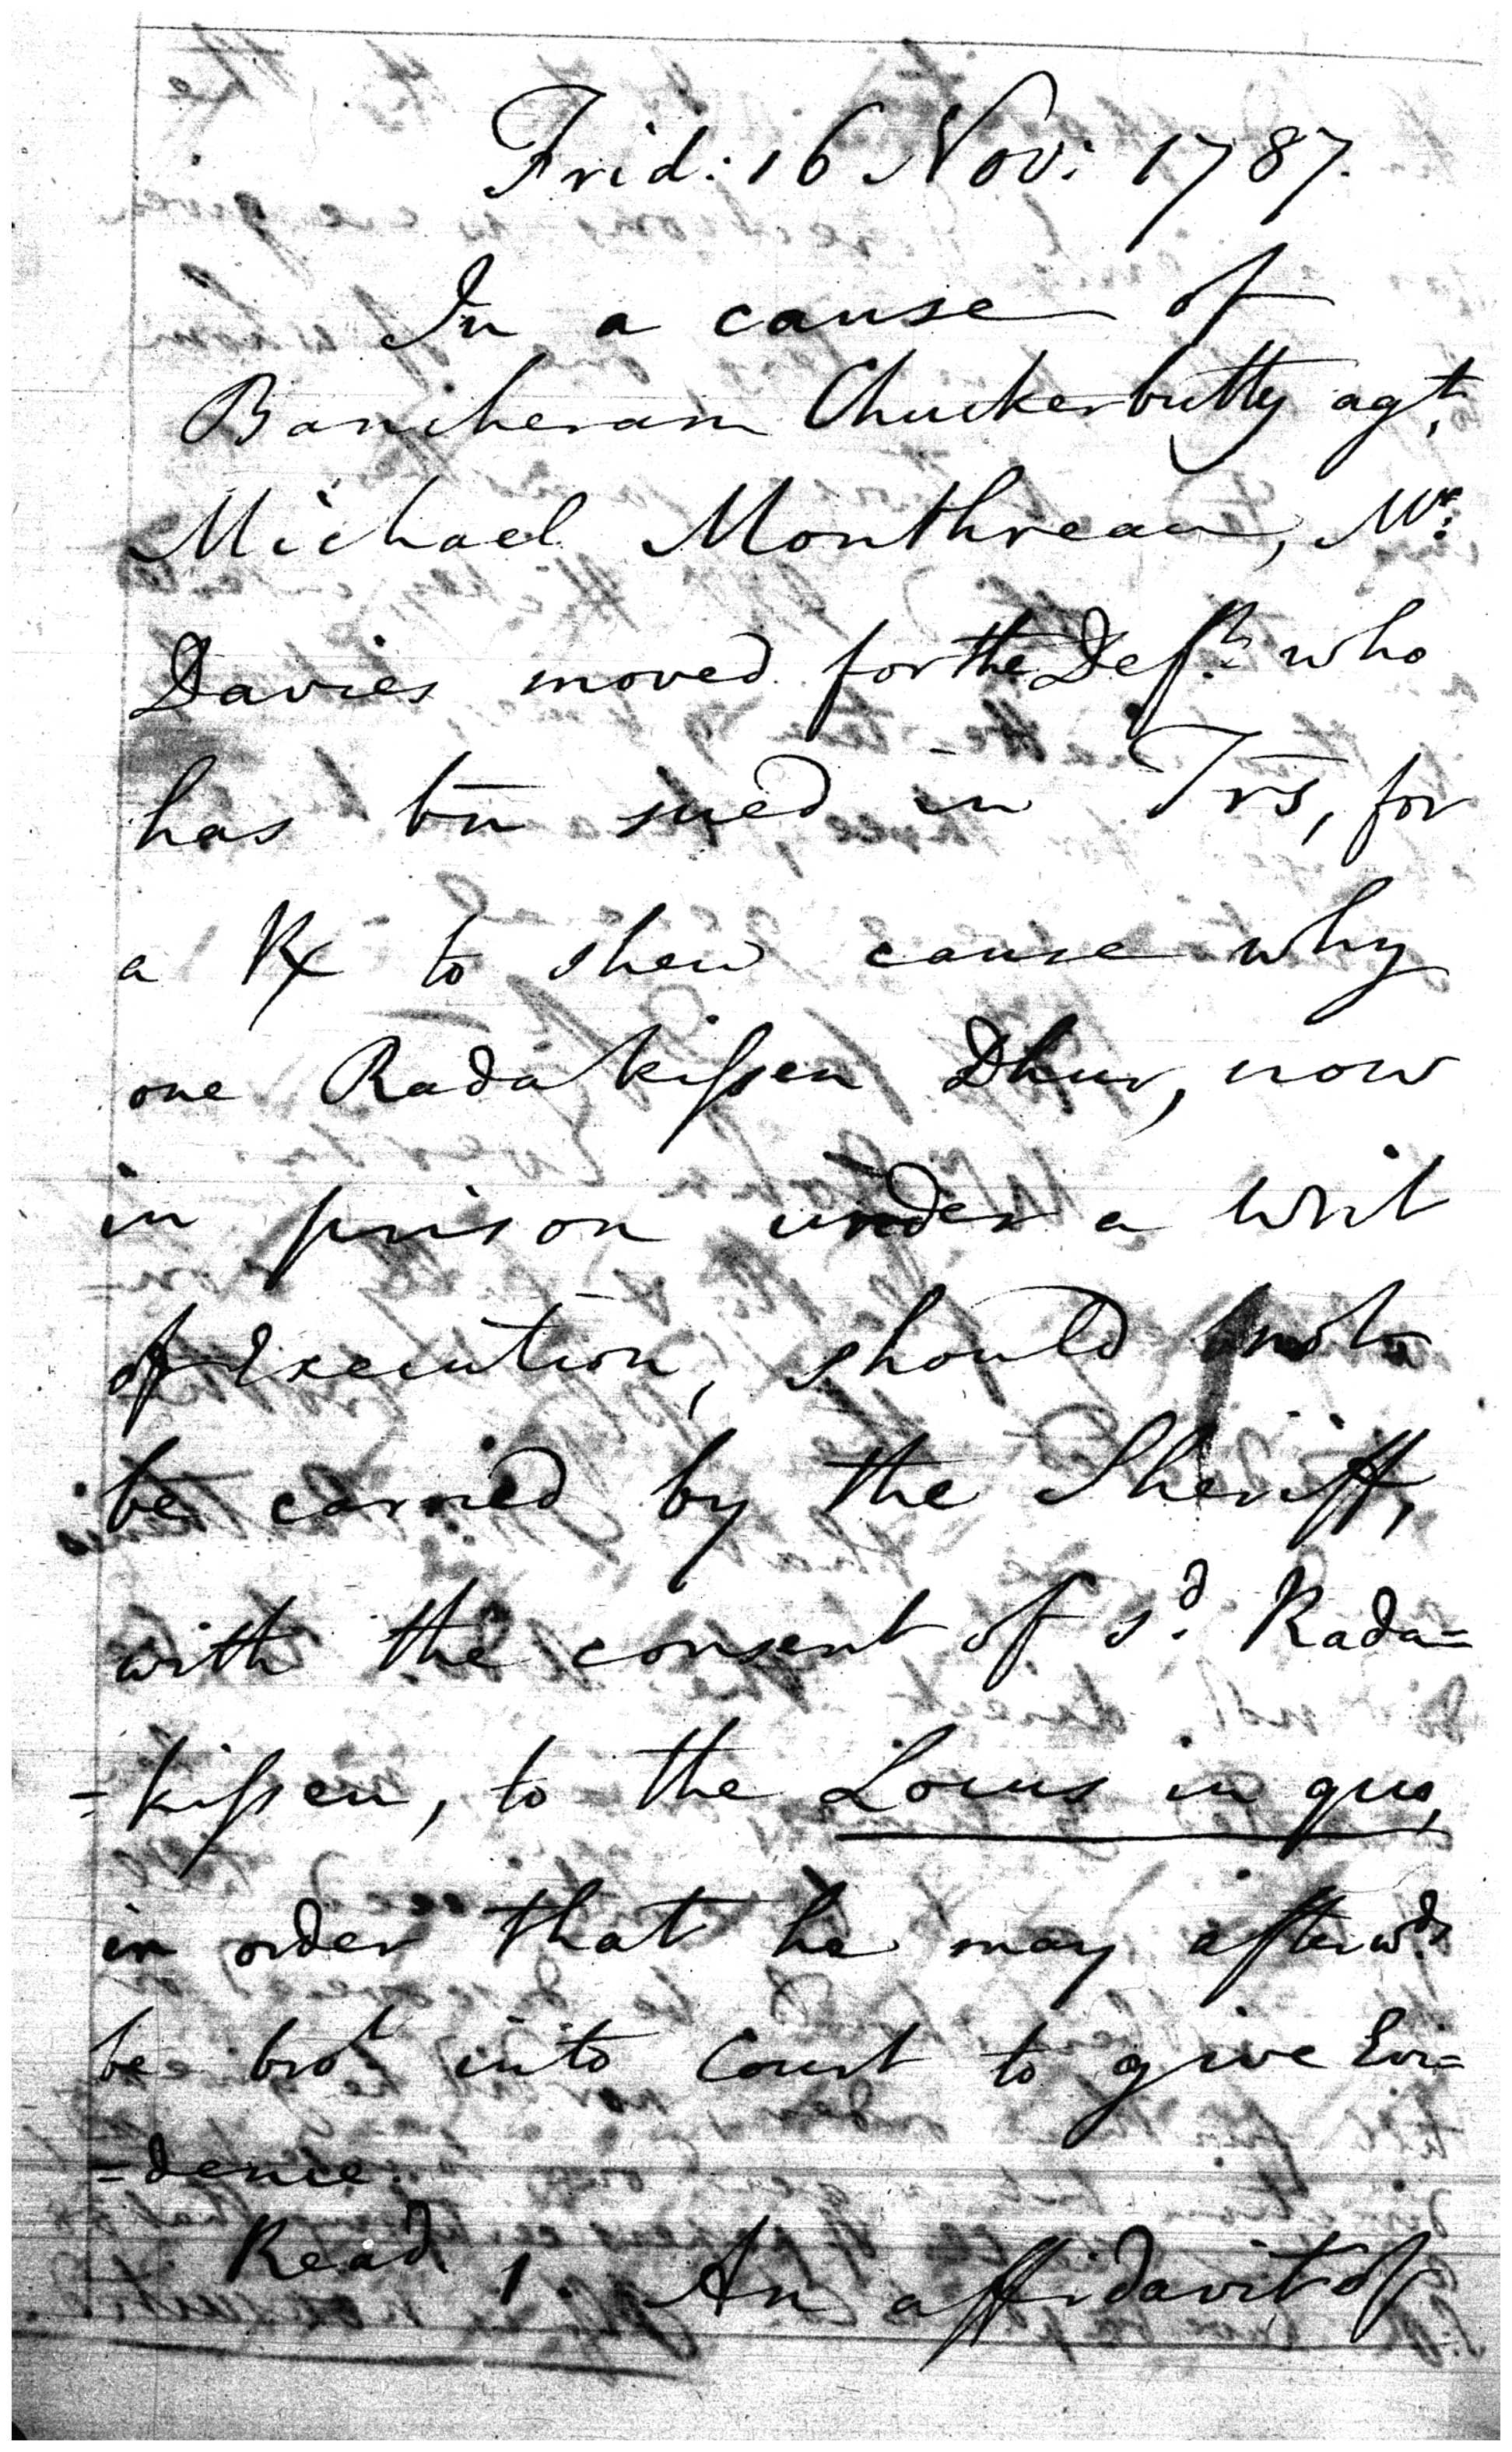 Frid: 16 Nov: 1787.
In a cause of
Bancheram Chuckerbutty agt.
Michael Monthreau, Mr:
Davies moved for the Deft. who
has bn sued in Trs, for
a Rx to shew cause why
one Rada kissen Dhur, now
in prison under a writ
of Execution, should not
be carried by the Sheriff,
with the consent of sd. Rada=
=kissen, to the Locus in quo,
in order that he may afterwds.
be brot. into Court to give Evi=
=dence.
Read 1. An affidavit of